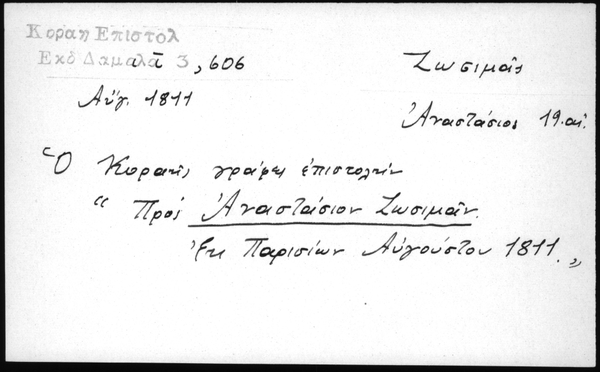 Κοραη Επιστολ
Εκδ Δαμαλα 3, 606
Ζωσιμᾶς
Αὔγ. 1811
Ἀναστάσιος 19.αἰ.
Ὁ Κοραῆς γράφει ἐπιστολὴν
“ Πρὸς Ἀναστάσιον Ζωσιμᾶν.
Ἐκ Παρισίων Αὐγούστου 1811.„